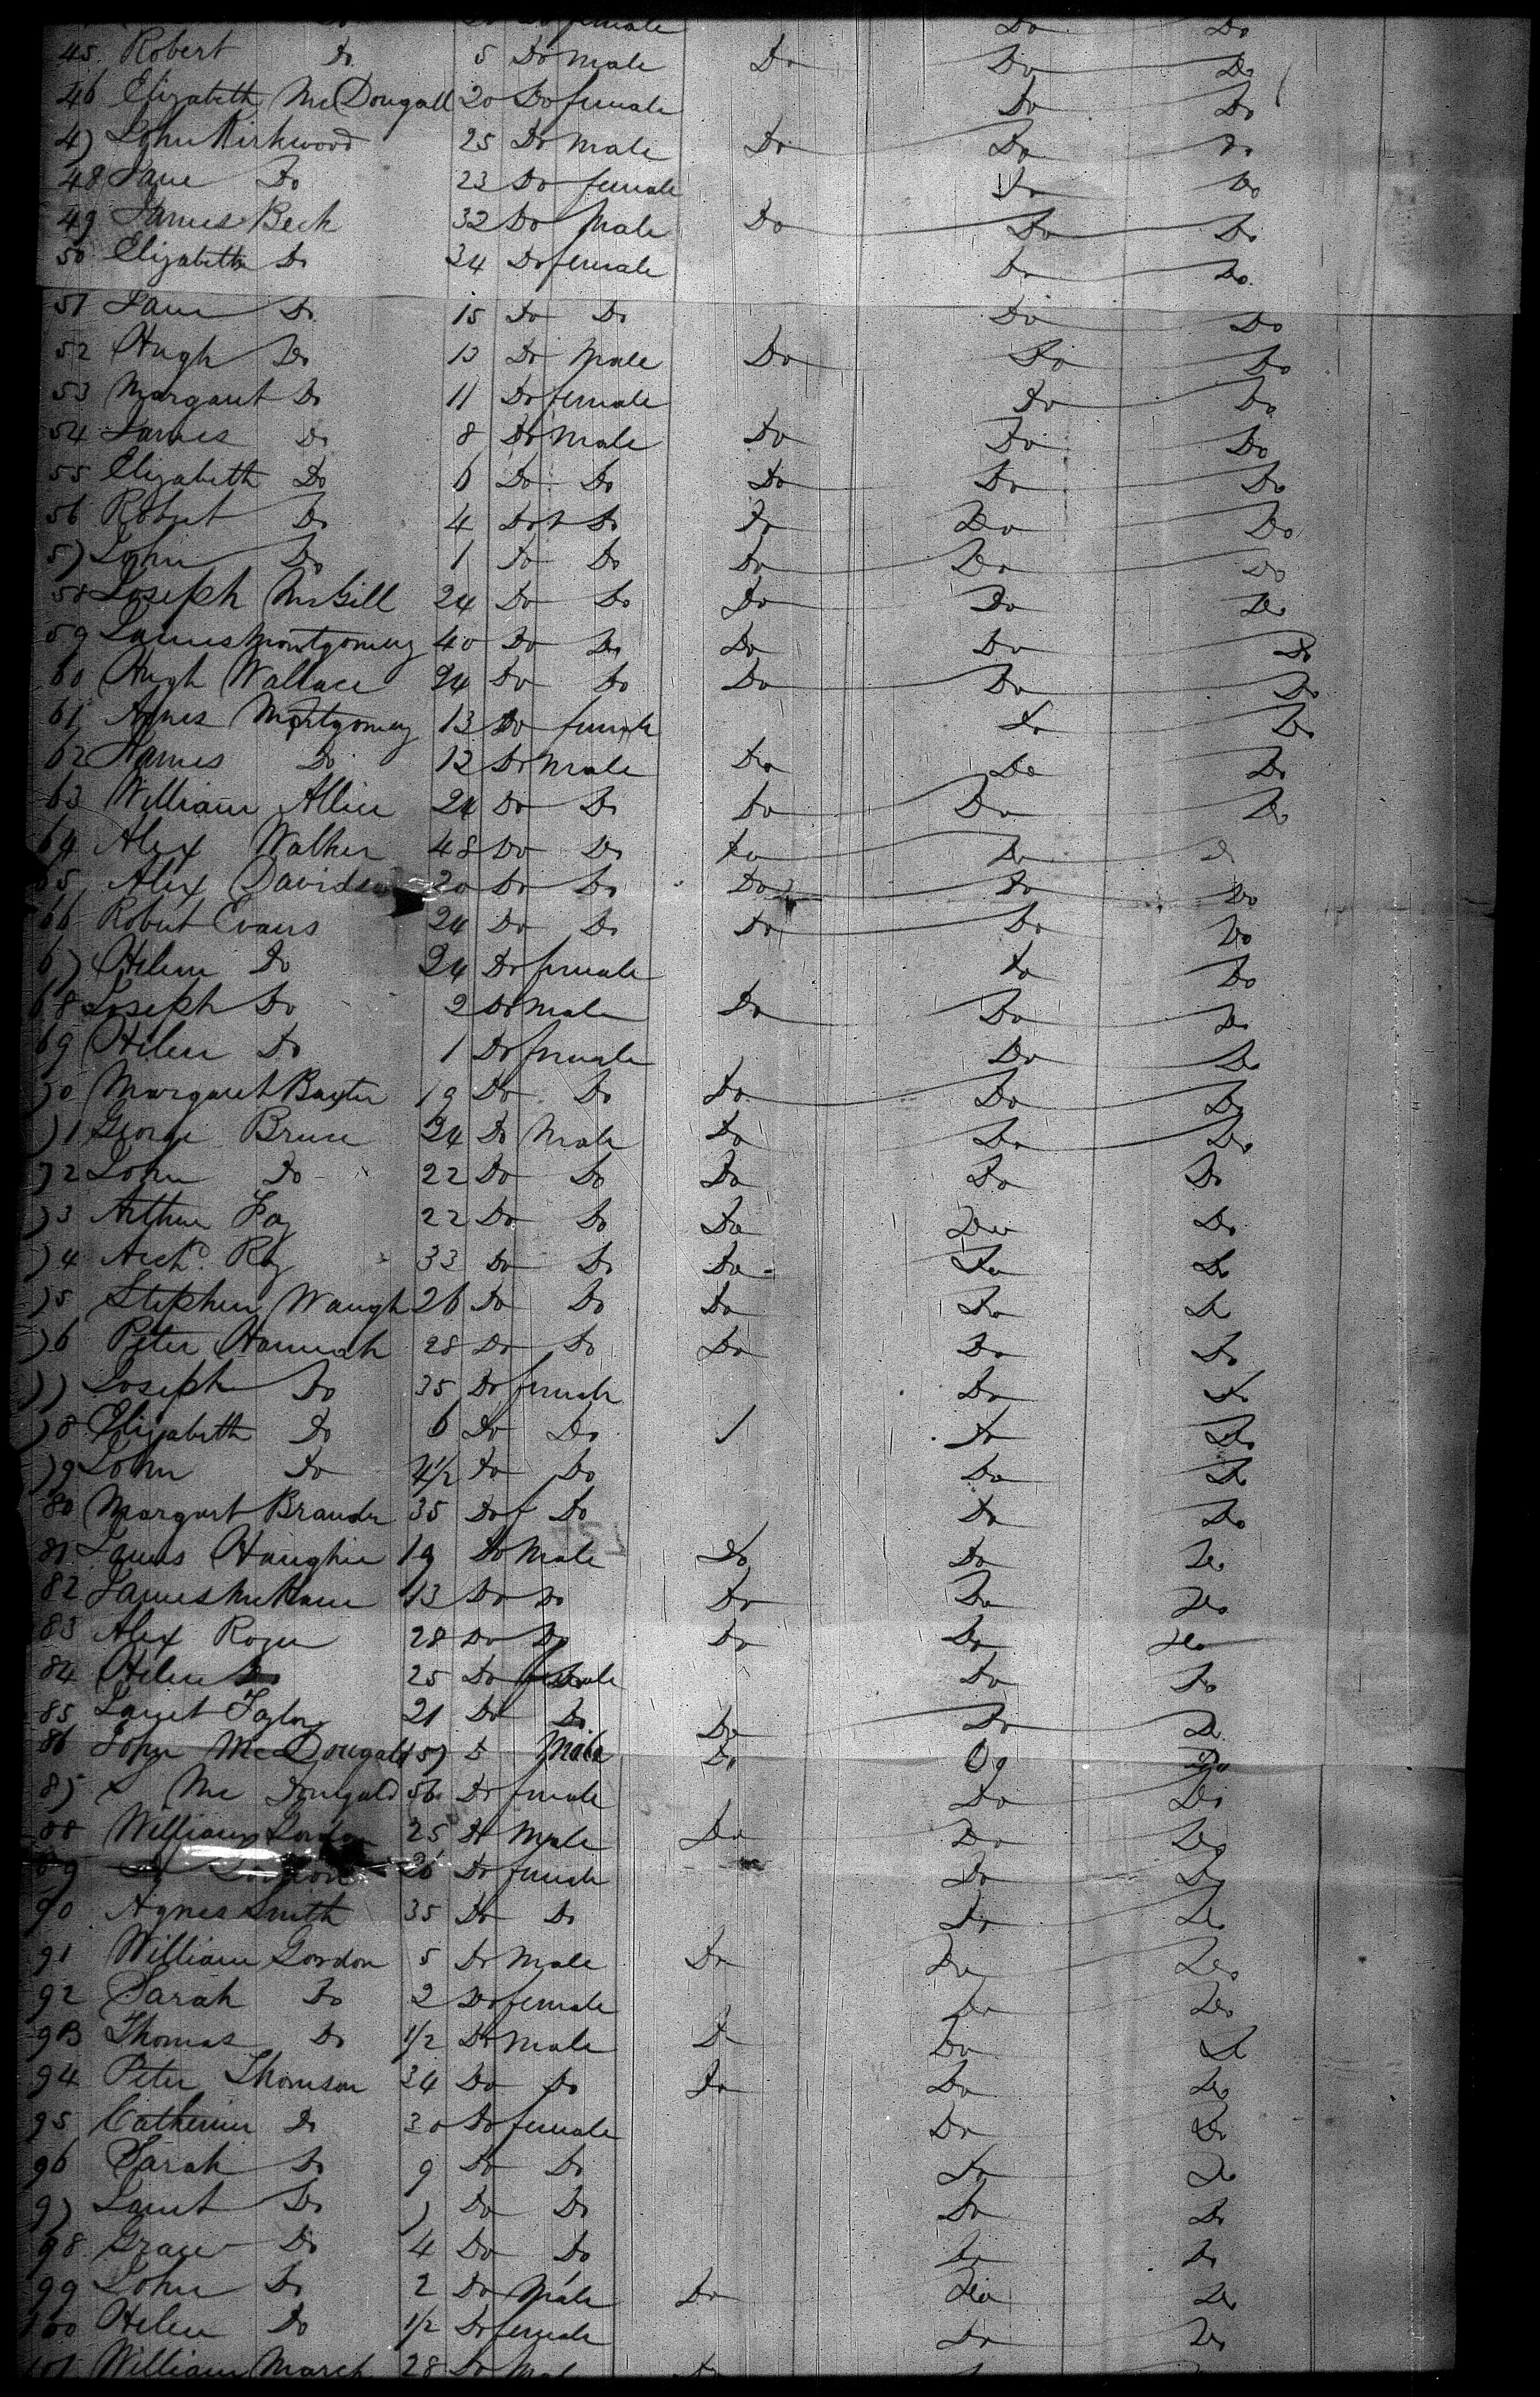 female Do Do
45 Robert Do 5 Do Male Do Do Do
46 Elizabeth McDougall 20 Do female Do Do
47 John Kirkwood 25 Do Male Do Do Do
48 Jane Do 23 Do female Do Do
49 James Beck 32 Do Male Do Do Do
50 Elizabeth Do 34 Do female Do Do
51 Jane Do 15 Do Do Do Do
52 Hugh Do 13 Do Male Do Do Do
53 Margaret Do 11 Do female Do Do
54 James Do 8 Do Male Do Do Do
55 Elizabeth Do 6 Do Do Do Do Do
56 Robert Do 4 Do Do Do Do Do
57 John Do 1 Do Do Do Do Do
58 Joseph McGill 24 Do Do Do Do Do
59 James Montgomery 40 Do Do Do Do Do
60 Hugh Wallace 24 Do Do Do Do Do
61 Agnes Montgomery 13 Do female Do Do
62 James Do 12 Do Male Do Do Do
63 William Allen 24 Do Do Do Do Do
64 Alex Walker 48 Do Do Do Do Do
65 Alex Davidson 20 Do Do Do Do Do
66 Robert Evans 24 Do Do Do Do Do
67 Helen Do 24 Do female Do Do
68 Joseph Do 2 Do Male Do Do Do
69 Helen Do 1 Do female Do Do
70 Margaret Baxter 19 Do Do Do Do Do
71 George Bruce 24 Do Male Do Do Do
72 John Do 22 Do Do Do Do Do
73 Arthur 22 Do Do Do Do Do
74 Archd. Roy 33 Do Do Do Do Do
75 Stephen Waugh 26 Do Do Do Do Do
76 Peter Hannah 28 Do Do Do Do Do
77 Joseph Do 35 Do female Do Do
78 Elizabeth Do 6 Do Do Do Do
79 John Do 4 1/2 Do Do Do Do
80 Margart Brander 35 Do f Do Do Do
81 James Haughie 19 Do Male Do Do Do
82 James 13 Do Do Do Do Do
83 Alex Roger 28 Do Do Do Do Do
84 Helen Do 25 Do female Do Do
85 Janet Taylor 21 Do Do Do Do Do
86 John McDougald 57 D Male Do Do Do
87 Mc Dougald 56 Do female Do Do
88 William Gordon 25 Do Male Do Do Do
89 Gordon 26 Do female Do Do
90 Agnes Smith 35 Do Do Do Do
91 William Gordon 5 Do Male Do Do Do
92 Sarah Do 2 Do female Do Do
93 Thomas Do 1/2 Do Male Do Do Do
94 Peter Thomson 34 Do Do Do Do Do
95 Catherine Do 30 Do female Do Do
96 Sarah Do 9 Do Do Do Do
97 Janet Do 7 Do Do Do Do
98 Grace Do 4 Do Do Do Do
99 John Do 2 Do Male Do Do Do
100 Helen Do 1/2 Do female Do Do
101 William March 28 Do Mal Do